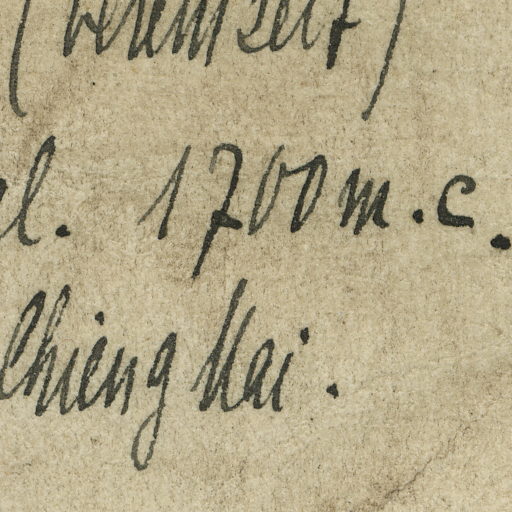 el. 1700 m. c.
Chieng Mai.